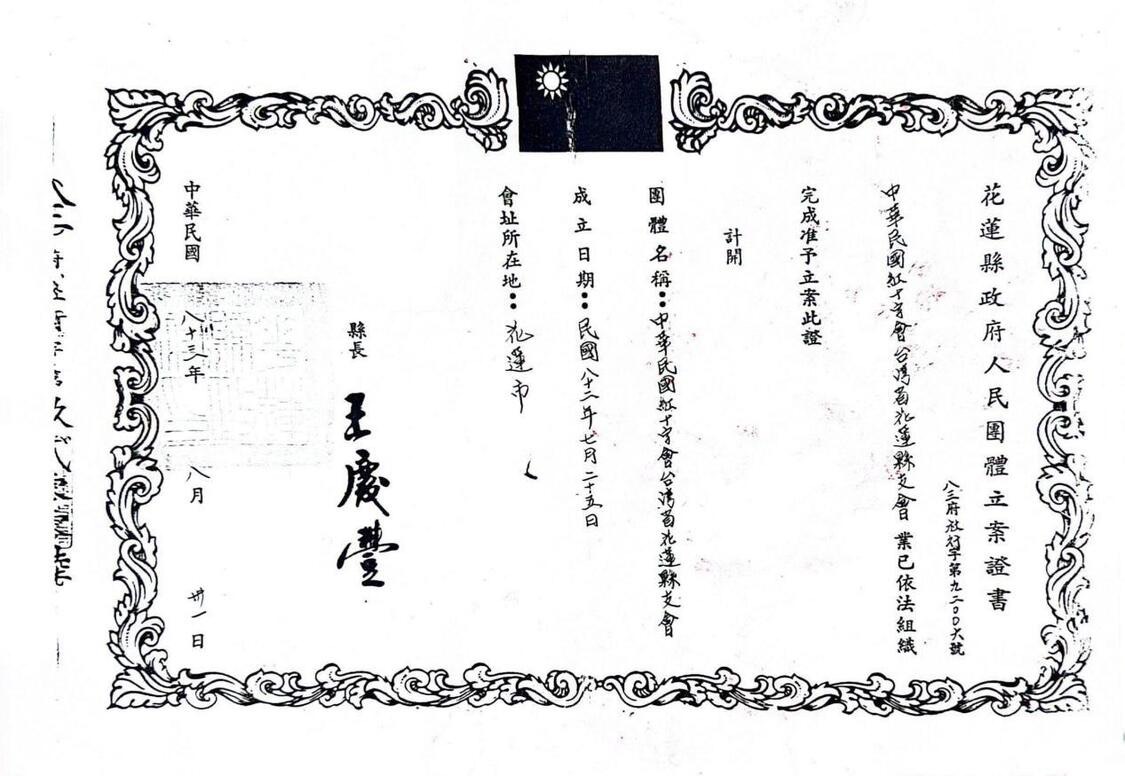 花蓮縣政府人民團體立案證書
八三府社行字第九二００六號
中華民國紅十字會台灣省花蓮縣支會業已依法組織
完成准予立案此證
計開
團體名稱：中華民國紅十字會台灣省花蓮縣支會
成立日期：民國八十三年七月二十五日
會址所在地：花蓮市
縣長 王慶豐
中華民國 八十三年 八月 卅一日